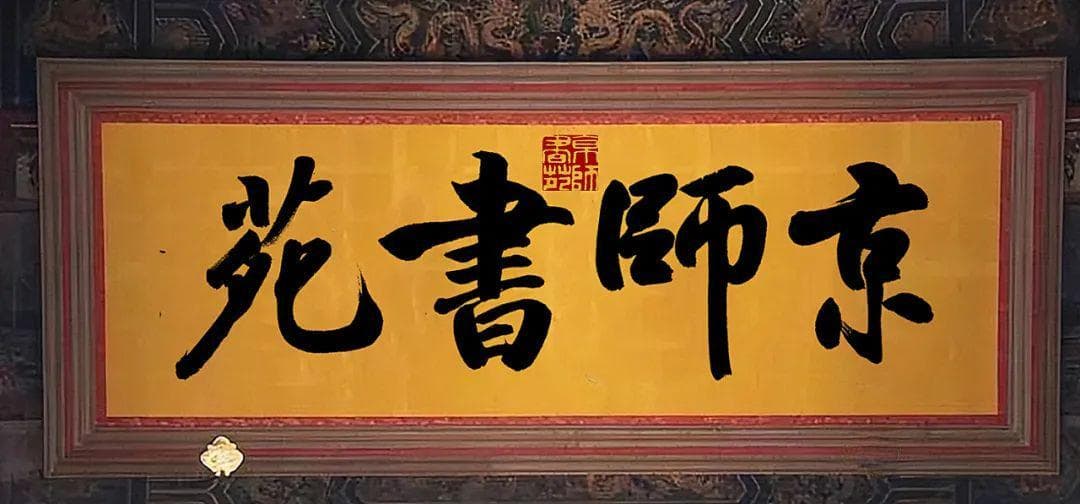 京師書苑
京師書苑